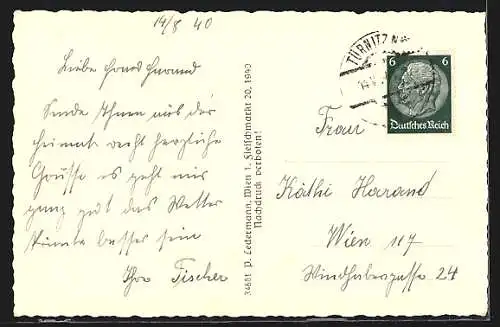 14/8 40
Liebe Frau Harand
Sende Ihnen aus der
Heimat recht herzliche
Grüsse es geht mir
ganz gut das Wetter
könnte besser sein
Ihre Fischer
34681 P. Ledermann, Wien 1. Fleischmarkt 20, 1940
Nachdruck verboten!
TÜRNITZ
6 6
Deutsches Reich
Frau
Käthi Harand
Wien 117
Windhabergasse 24